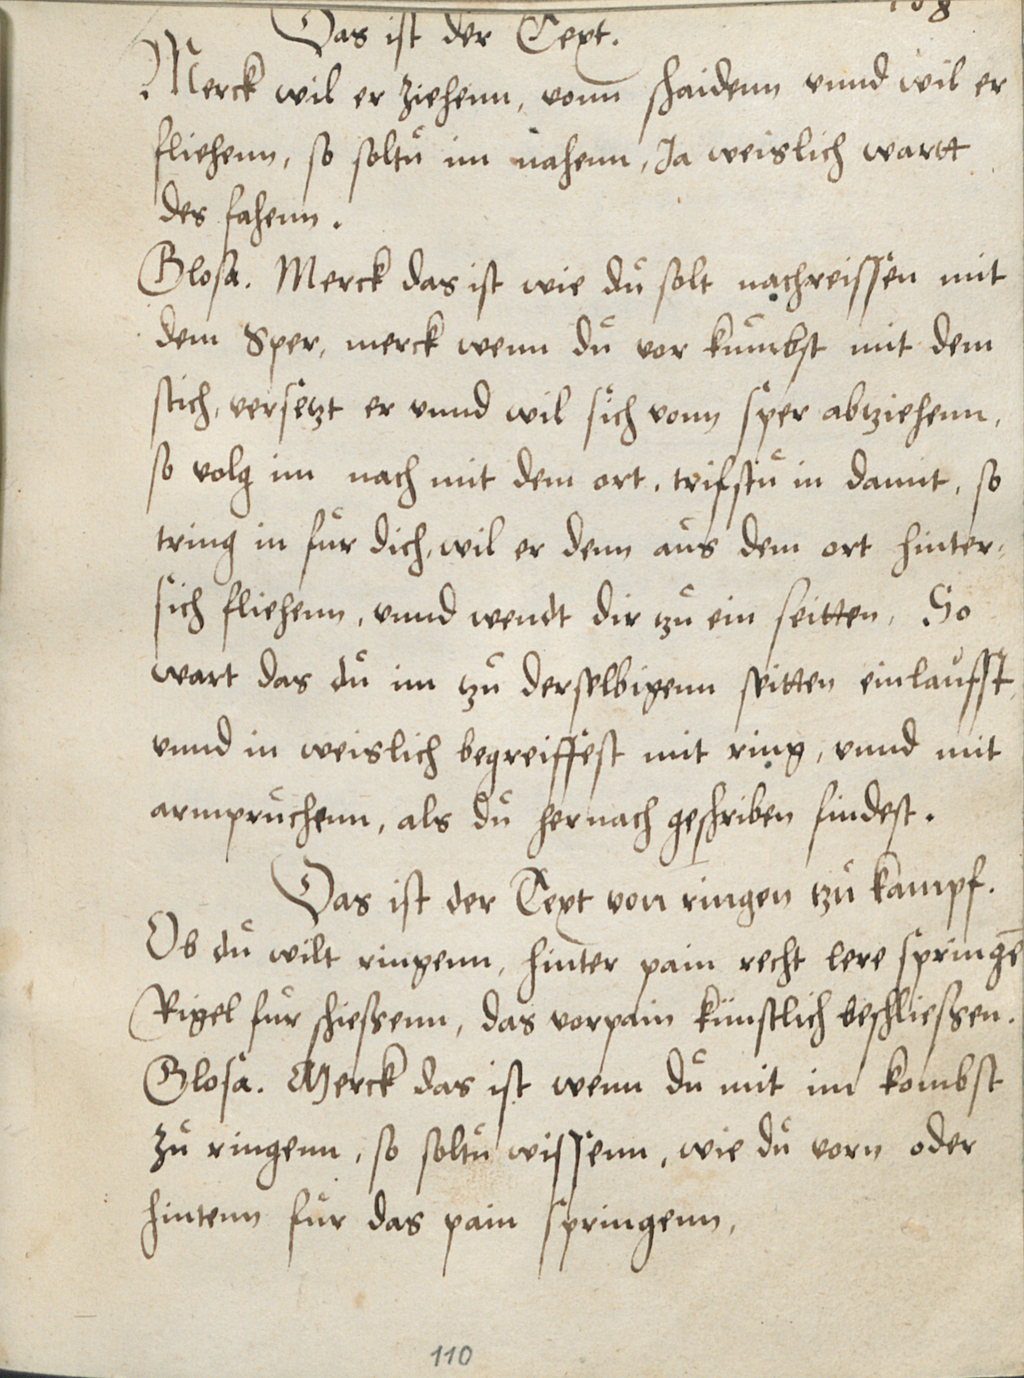 Das ist der Text.
Merck wil er ziehenn, vonn shaidenn vnnd wil er
fliehenn, so soltu im nahenn, Ja weislich wartt
des fahenn.
Glosa. Merck das ist wie du solt nachreissen mit
dem Sper, merck wenn du vor kumbst mit dem
stich, versetzt er vnnd wil sich vonn sper abtziehenn,
so volg im nach mit dem ort, trifstu in damit, so
tring in fur dich, wil er denn aus dem ort hinter-
sich fliehenn, vnnd wendt dir tzu ein seitten, So
wart das du im tzu derselbigenn seitten einlauffst,
vnnd in weislich begreiffest mit ring, vnnd mit
armpruchenn, als du hernach geshriben findest.
Das ist der Text von ringen tzu kampf.
Ob du wilt ringenn, hinter pain recht lere springē
Rigel fur shiessenn, das vorpain künstlich beshliessen.
Glosa. Merck das ist wenn du mit im kombst
zu ringenn, so soltu wissenn, wie du vorn oder
hintenn fur das pain springenn,
110